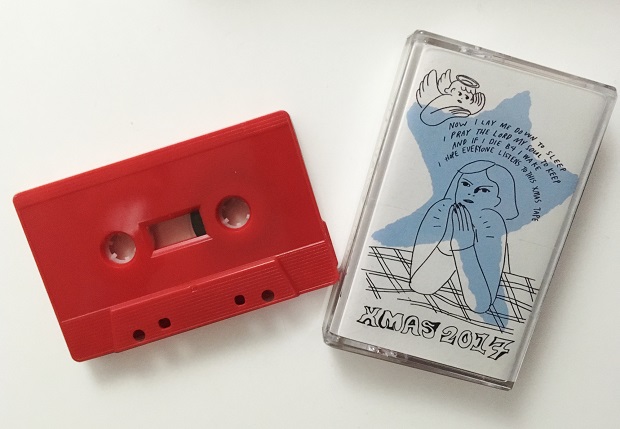 NOW I LAY ME DOWN TO SLEEP
I PRAY THE LORD MY SOUL TO KEEP
AND IF I DIE BY I WAKE
I HOPE EVERYONE LISTENS TO THIS XMAS TAPE
XMAS 2017